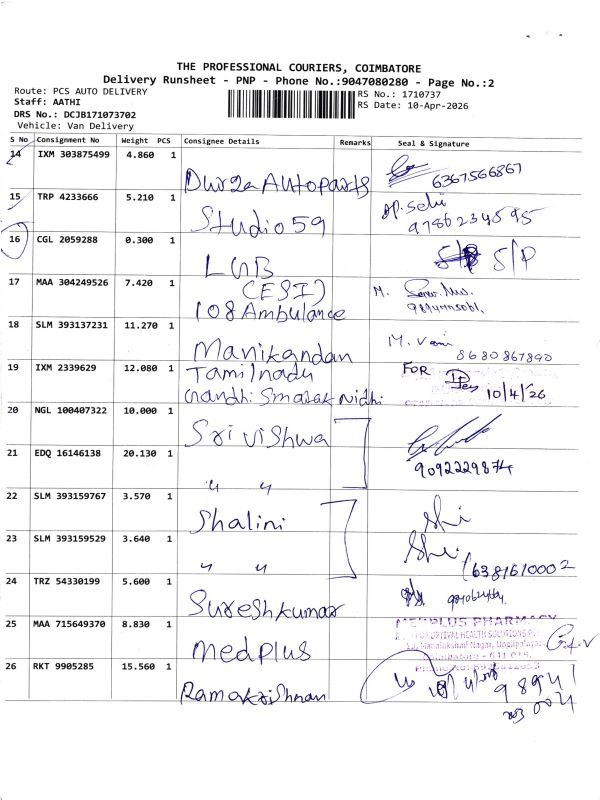 THE PROFESSIONAL COURIERS, COIMBATORE
Delivery Runsheet - PNP - Phone No.:9047080280 - Page No.:2
Route: PCS AUTO DELIVERY
RS No.: 1710737
Staff: AATHI
RS Date: 10-Apr-2026
DRS No.: DCJB171073702
Vehicle: Van Delivery
S No Consignment No Weight PCS Consignee Details Remarks Seal & Signature
14 IXM 303875499 4.860 1
Durga Autoparts 6367566867
15 TRP 4233666 5.210 1
Studio 59 9786234595
16 CGL 2059288 0.300 1
LGB S/P
(ESI)
17 MAA 304249526 7.420 1
108 Ambulance
18 SLM 393137231 11.270 1
Manikandan M. Vani
8680867890
19 IXM 2339629 12.080 1
Tamilnadu FOR
Gandhi Smarak Nidhi 10/4/26
20 NGL 100407322 10.000 1
Sri Vishwa
21 EDQ 16146138 20.130 1
" " 9092229874
22 SLM 393159767 3.570 1
Shalini
23 SLM 393159529 3.640 1
" " 6381610002
24 TRZ 54330199 5.600 1
Sureshkumar
25 MAA 715649370 8.830 1
Medplus
MEDPLUS PHARMACY
26 RKT 9905285 15.560 1
Ramakrishnan